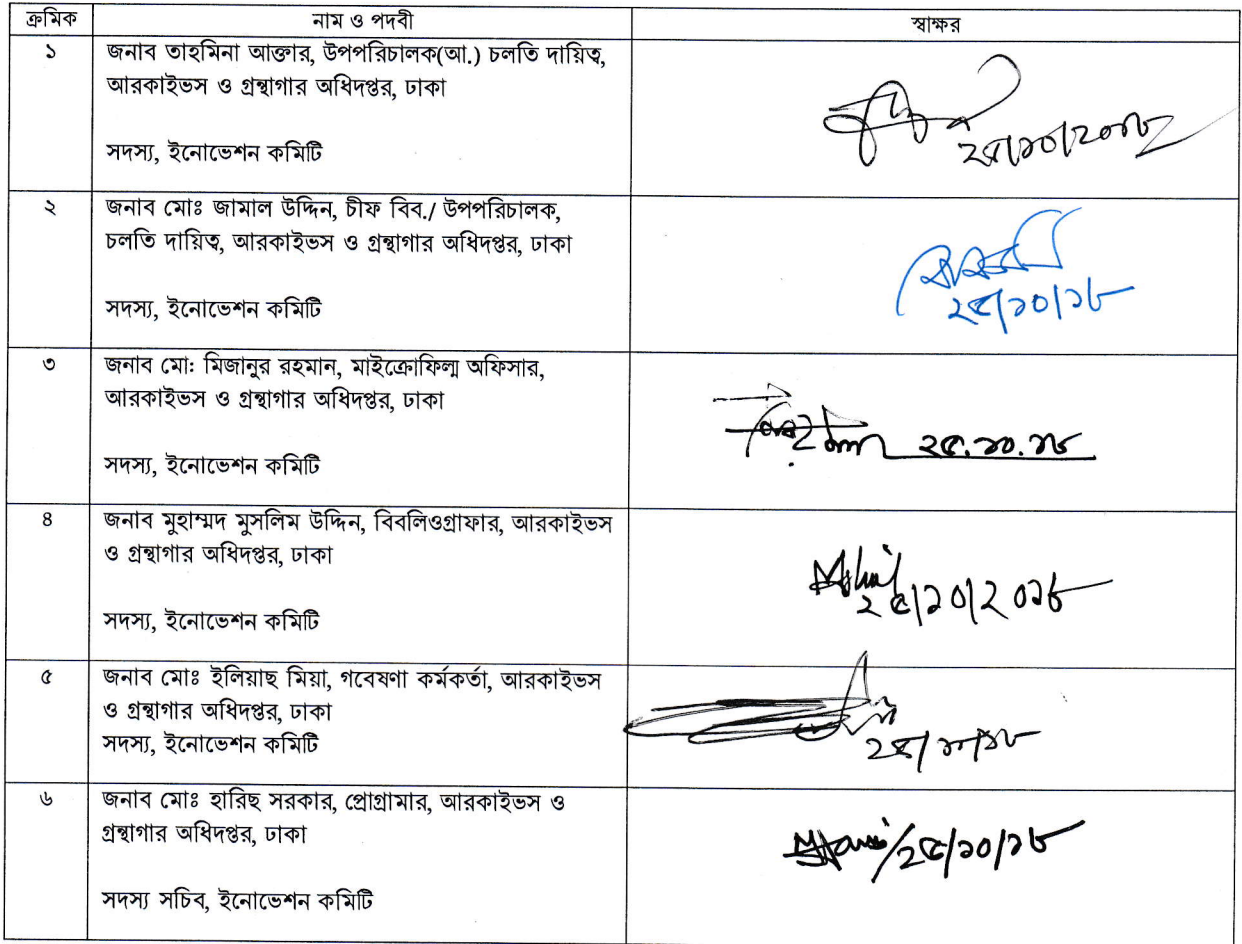 ক্রমিক নাম ও পদবী স্বাক্ষর
১ জনাব তাহমিনা আক্তার, উপপরিচালক(আ.) চলতি দায়িত্ব,
আরকাইভস ও গ্রন্থাগার অধিদপ্তর, ঢাকা
২৫/১০/২০১৮
সদস্য, ইনোভেশন কমিটি
২ জনাব মোঃ জামাল উদ্দিন, চীফ বিব./ উপপরিচালক,
চলতি দায়িত্ব, আরকাইভস ও গ্রন্থাগার অধিদপ্তর, ঢাকা
২৫/১০/১৮
সদস্য, ইনোভেশন কমিটি
৩ জনাব মো: মিজানুর রহমান, মাইক্রোফিল্ম অফিসার,
আরকাইভস ও গ্রন্থাগার অধিদপ্তর, ঢাকা
২৫.১০.১৮
সদস্য, ইনোভেশন কমিটি
৪ জনাব মুহাম্মদ মুসলিম উদ্দিন, বিবলিওগ্রাফার, আরকাইভস
ও গ্রন্থাগার অধিদপ্তর, ঢাকা
২৫/১০/২০১৮
সদস্য, ইনোভেশন কমিটি
৫ জনাব মোঃ ইলিয়াছ মিয়া, গবেষণা কর্মকর্তা, আরকাইভস
ও গ্রন্থাগার অধিদপ্তর, ঢাকা
সদস্য, ইনোভেশন কমিটি
২৫/১০/১৮
৬ জনাব মোঃ হারিছ সরকার, প্রোগ্রামার, আরকাইভস ও
গ্রন্থাগার অধিদপ্তর, ঢাকা
২৫/১০/১৮
সদস্য সচিব, ইনোভেশন কমিটি